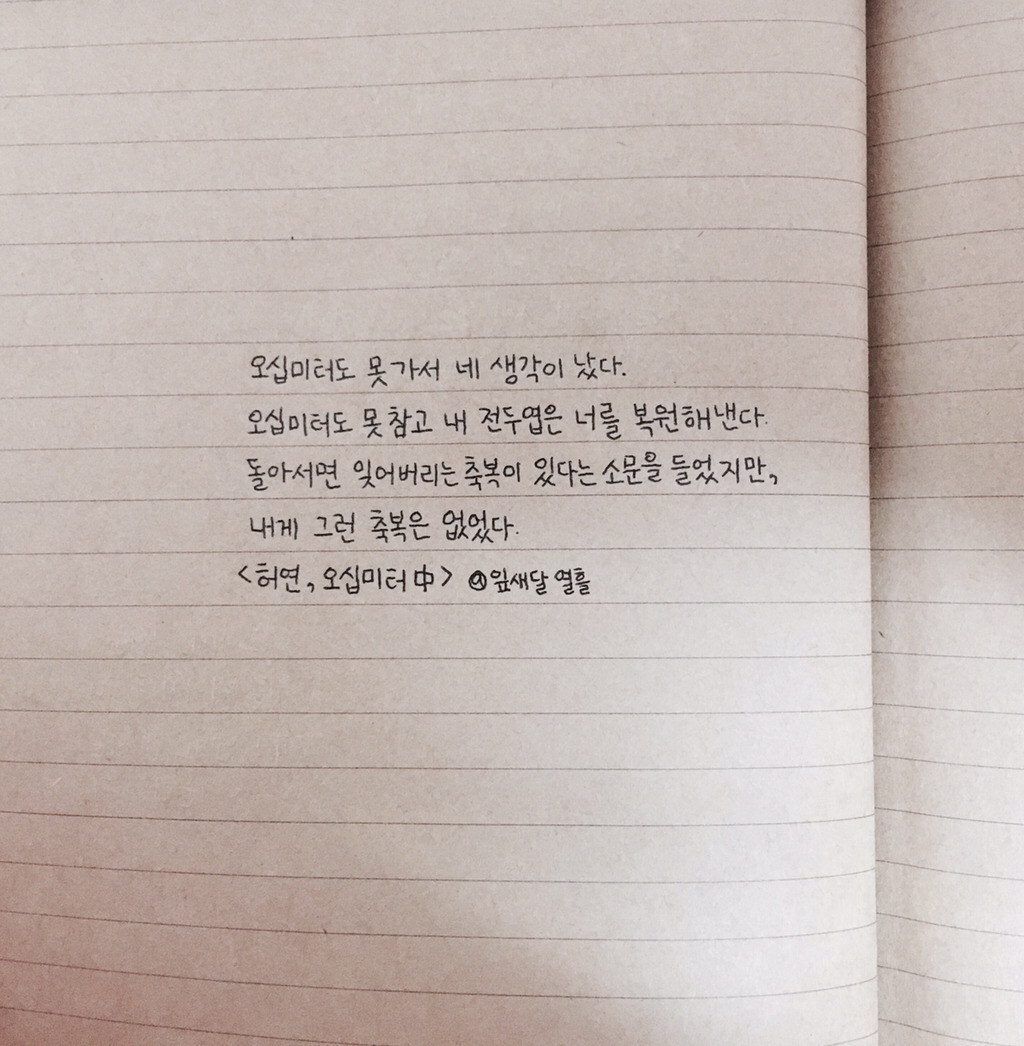 오십미터도 못 가서 네 생각이 났다.
오십미터도 못 참고 내 전두엽은 너를 복원해낸다.
돌아서면 잊어버리는 축복이 있다는 소문을 들었지만,
내게 그런 축복은 없었다.
<허연, 오십미터 中> @잎새달 열흘